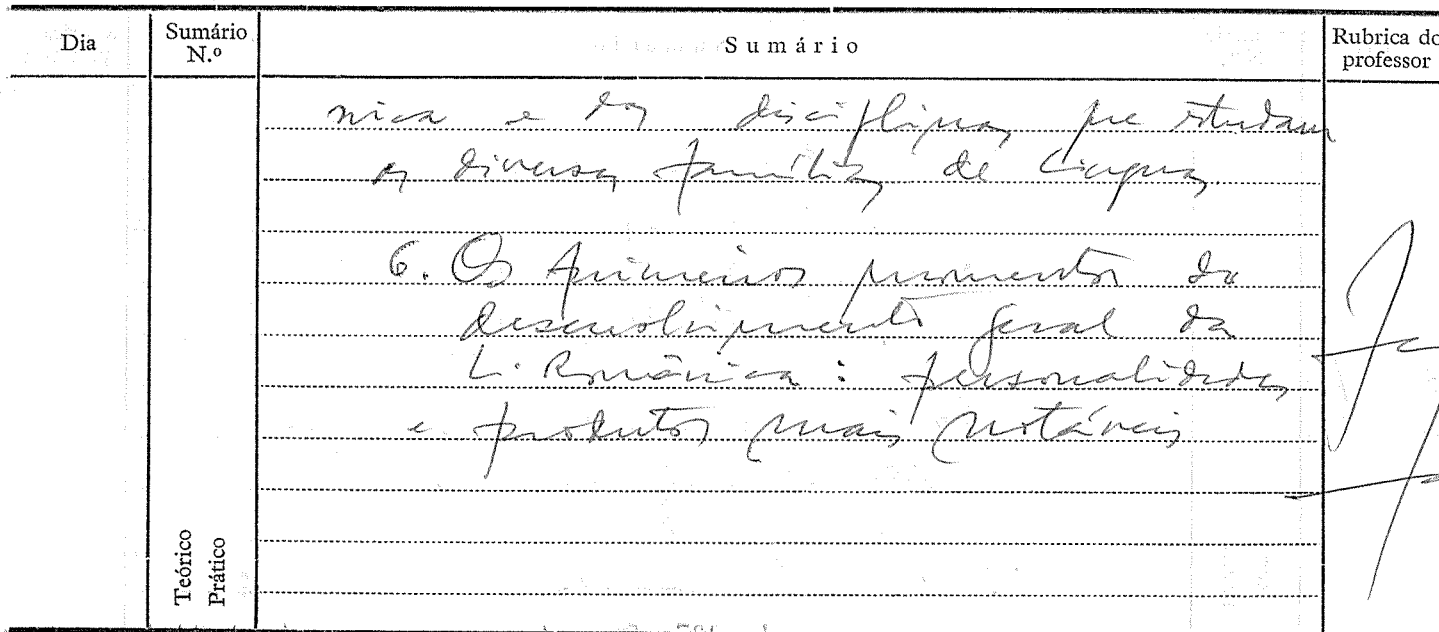 Dia
Sumário N.º
Sumário
Rubrica do professor
nica e das disciplinas que estudam
as diversas famílias de línguas
6. Os primeiros momentos do
desenvolvimento geral da
L. Românica: personalidades
e produtos mais notáveis
Teórico
Prático